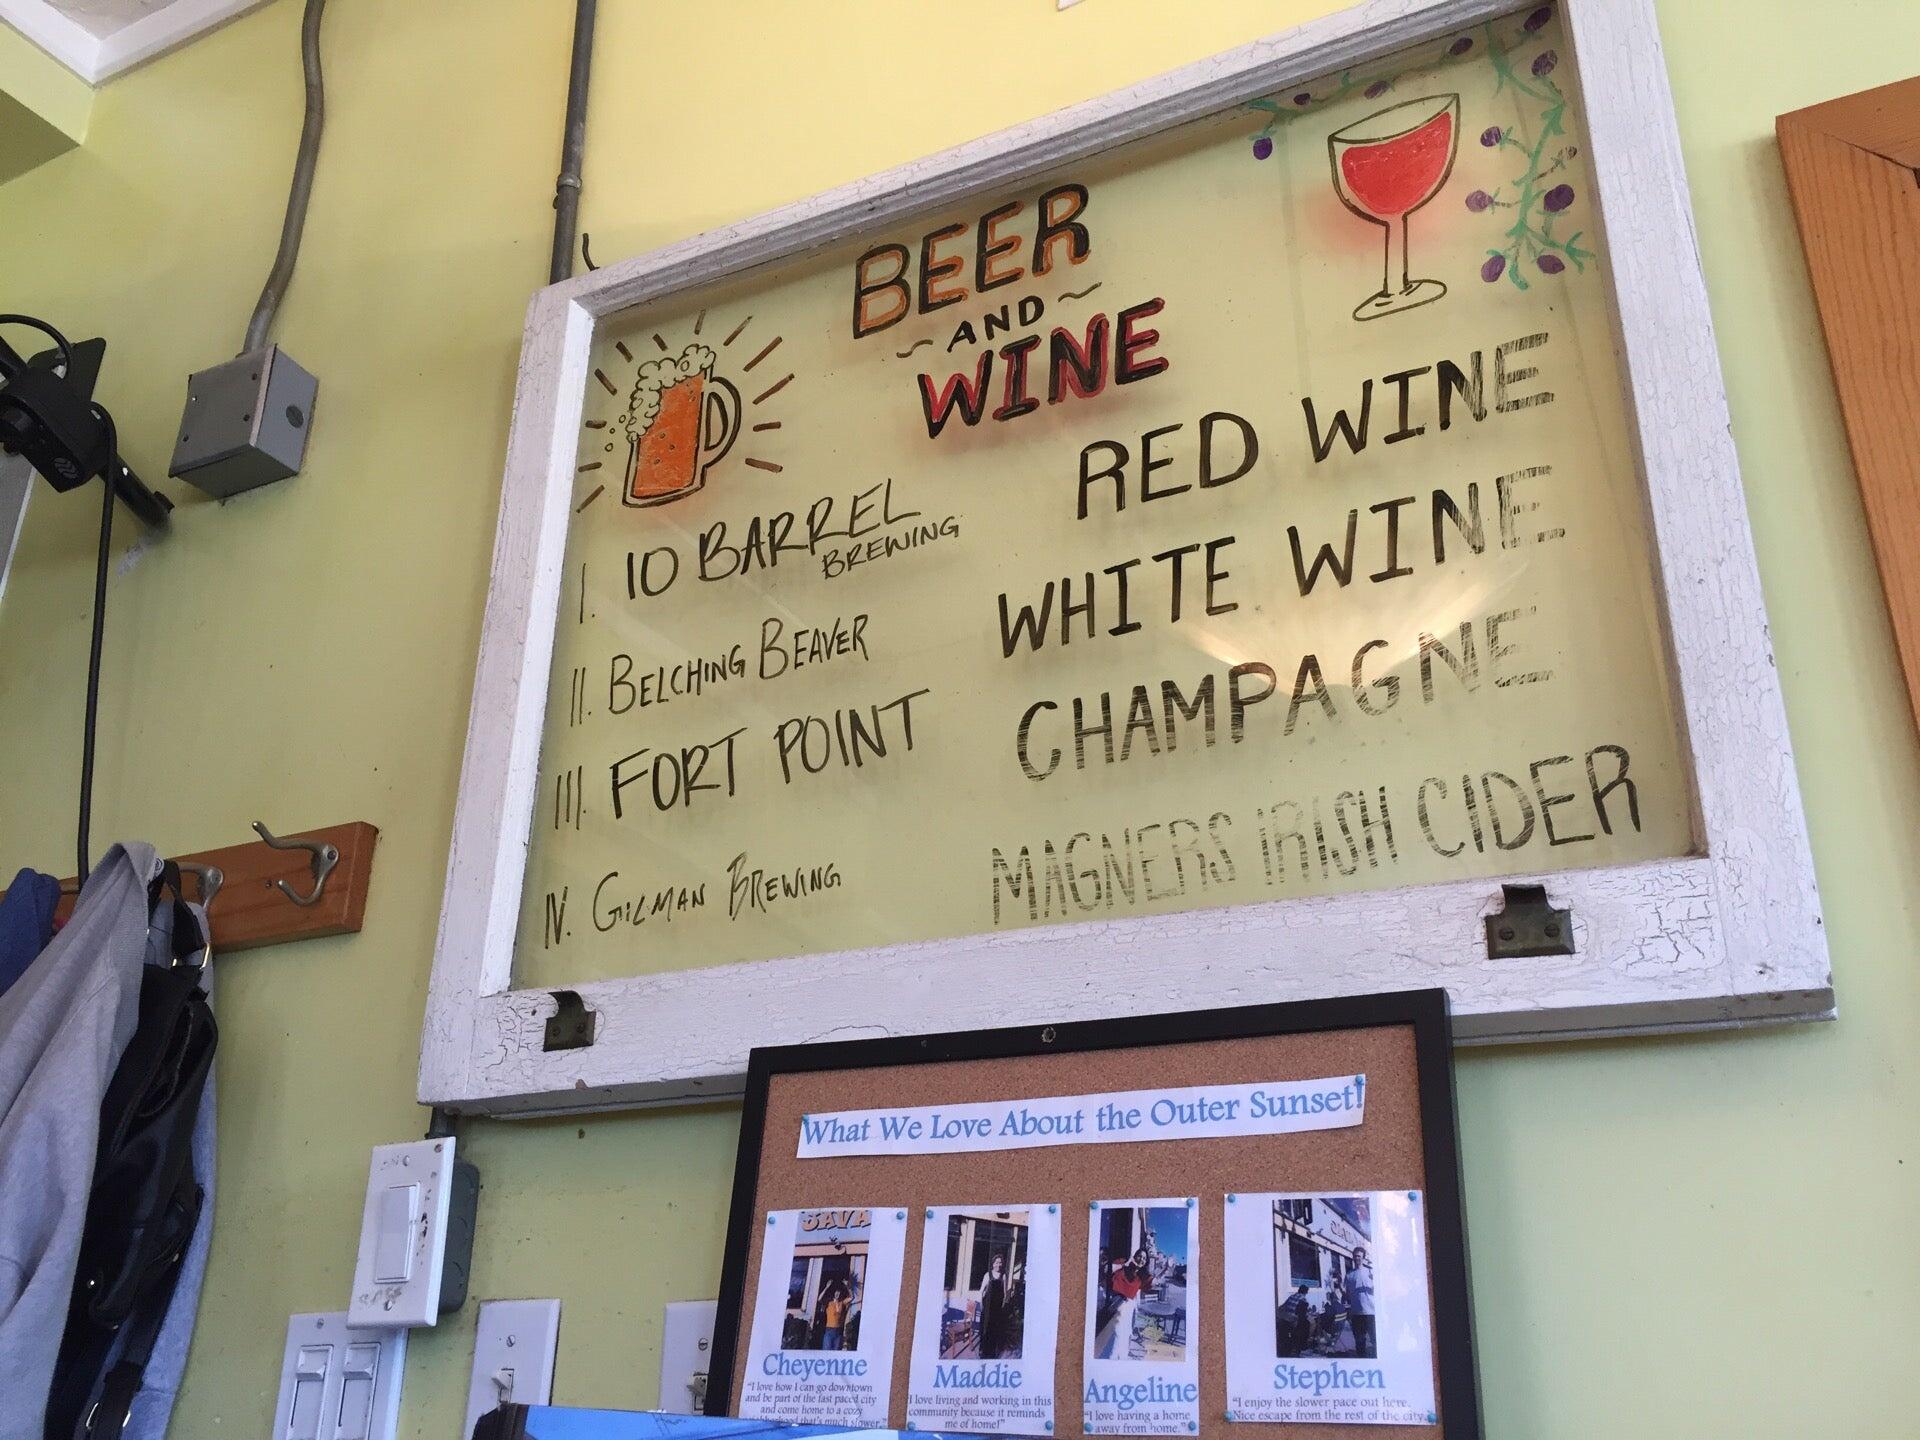 BEER
~AND~
WINE
I. 10 BARREL
BREWING
II. BELCHING BEAVER
III. FORT POINT
IV. GILMAN BREWING
RED WINE
WHITE WINE
CHAMPAGNE
MAGNERS IRISH CIDER
What We Love About the Outer Sunset!
JAVA
Cheyenne
"I love how I can go downtown
and be part of the fast paced city
and come home to a cozy
that's much slower."
Maddie
I love living and working in this
community because it reminds
me of home!"
Angeline
"I love having a home
away from home."
Stephen
"I enjoy the slower pace out here.
Nice escape from the rest of the city."